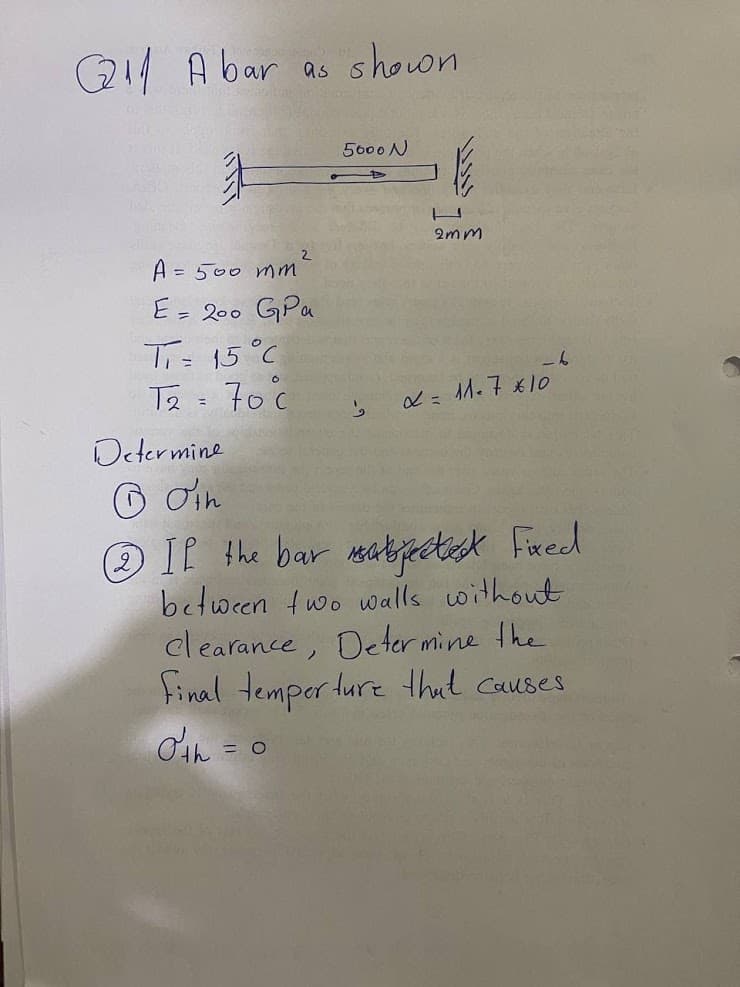 Q1// A bar as shown
5000 N
2mm
A = 500 mm²
E = 200 GPa
T₁ = 15 °C
T₂ = 70 °C ; α = 11.7 *10⁻⁶
Determine
① σth
② If the bar Fixed
between two walls without
clearance, Determine the
final temperture that causes
σth = 0